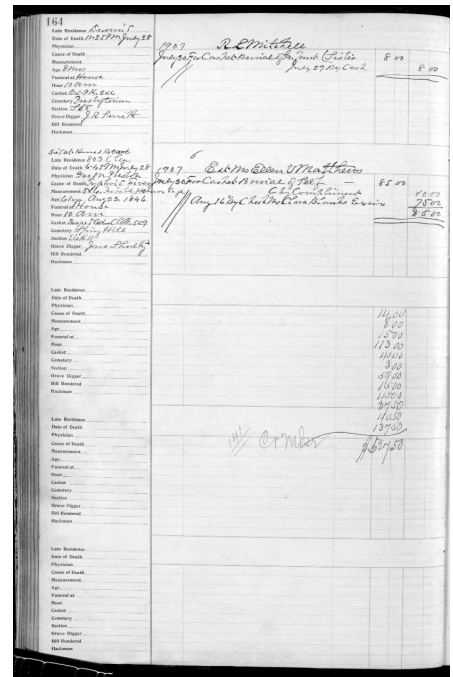 164
Late Residence
Date of Death 11.25 PM July 28
Physician
Cause of Death
Measurement
Age 8 mos
Funeral at House
Hour 10 am
Casket
Cemetery Presbyterian
Section 568
Grave Digger J R Smith
Bill Rendered
Hackman
1907 R L Mitchell
July 30 For Casket Burial of Infant (Lislie 8 00
July 29 By Cash 8 00
Late Residence 803 Clay
Date of Death 6.45 PM July 28
Physician Geo M Preston
Cause of Death Typhoid Fever
Measurement
Age Aug 23. 1846
Funeral at House
Hour 10 am
Casket
Cemetery Spring Hill
Section
Grave Digger Jno Shultz
Bill Rendered
Hackman
1907 Est Mrs Ellen V Matthews
July 30 For Casket Burial of Self 85 00
By Compliment 10 00
Aug 16 By Check Mrs Clara Blanks 75 00
85 00
Late Residence
Date of Death
Physician
Cause of Death
Measurement
Age
Funeral at
Hour
Casket
Cemetery
Section
Grave Digger
Bill Rendered
Hackman
14 00
8 00
15 00
113 00
40 00
3 00
59 00
Late Residence
Date of Death
Physician
Cause of Death
Measurement
Age
Funeral at
Hour
Casket
Cemetery
Section
Grave Digger
Bill Rendered
Hackman
40 50
137 50
$627 50
Late Residence
Date of Death
Physician
Cause of Death
Measurement
Age
Funeral at
Hour
Casket
Cemetery
Section
Grave Digger
Bill Rendered
Hackman